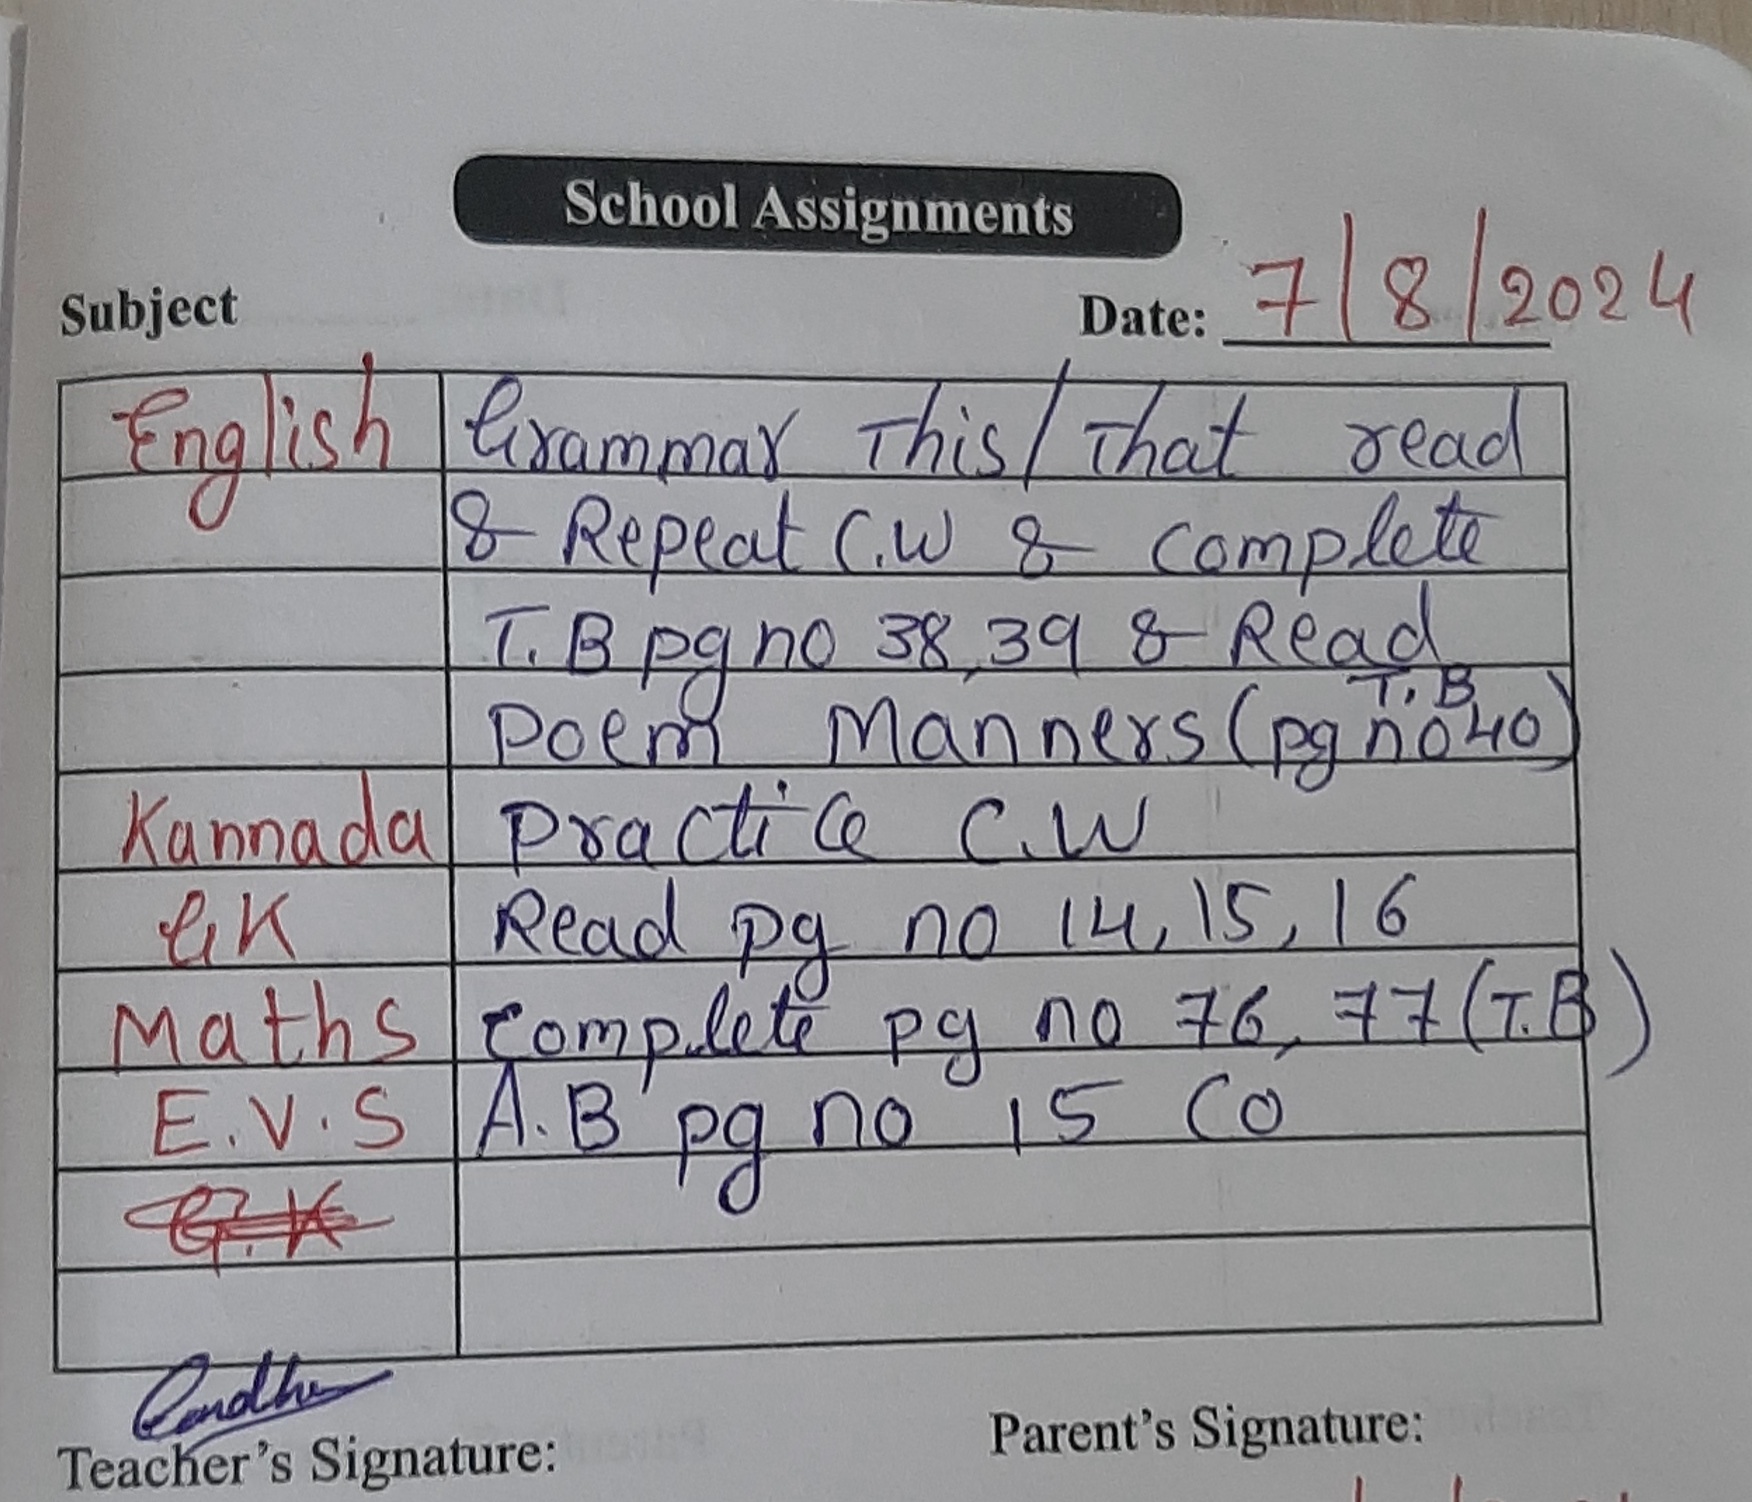 School Assignments
Subject Date: 7/8/2024
English Grammar This/That read
& Repeat C.W & complete
T.B pg no 38,39 & Read
T.B
Poem Manners (pg no 40)
Kannada Practice C.W
GK Read pg no 14, 15, 16
Maths Complete pg no 76, 77 (T.B)
E.V.S A.B pg no 15 CO
G.K
Teacher's Signature: Parent's Signature: